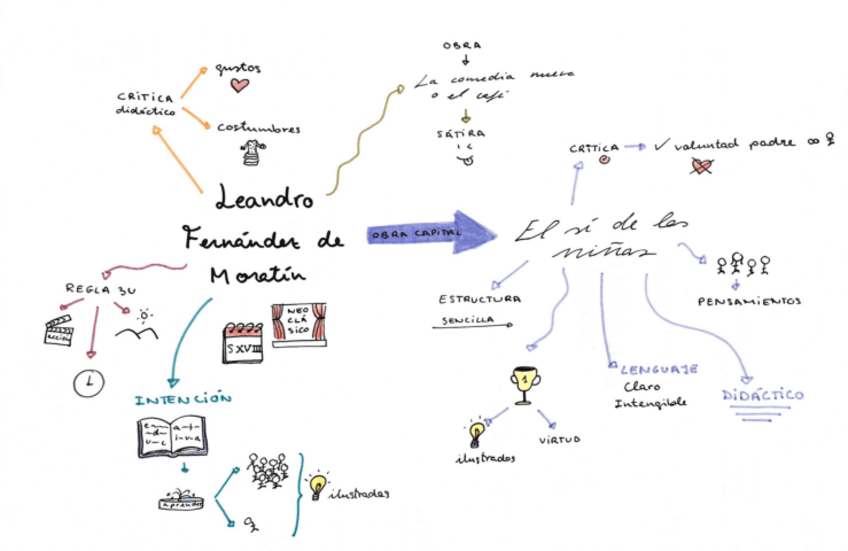 Leandro
Fernández de
Moratín
CRÍTICA
didáctico
gustos
costumbres
OBRA
La comedia nueva
o el café
SÁTIRA
OBRA CAPITAL
El sí de las
niñas
CRÍTICA
voluntad padre
PENSAMIENTOS
ESTRUCTURA
SENCILLA
1
ilustrados
VIRTUD
LENGUAJE
Claro
Intengible
DIDÁCTICO
REGLA 3U
ACCIÓN
S XVIII
NEO
CLÁ
SICO
INTENCIÓN
e d u c
a t i v a
aprender
ilustrados